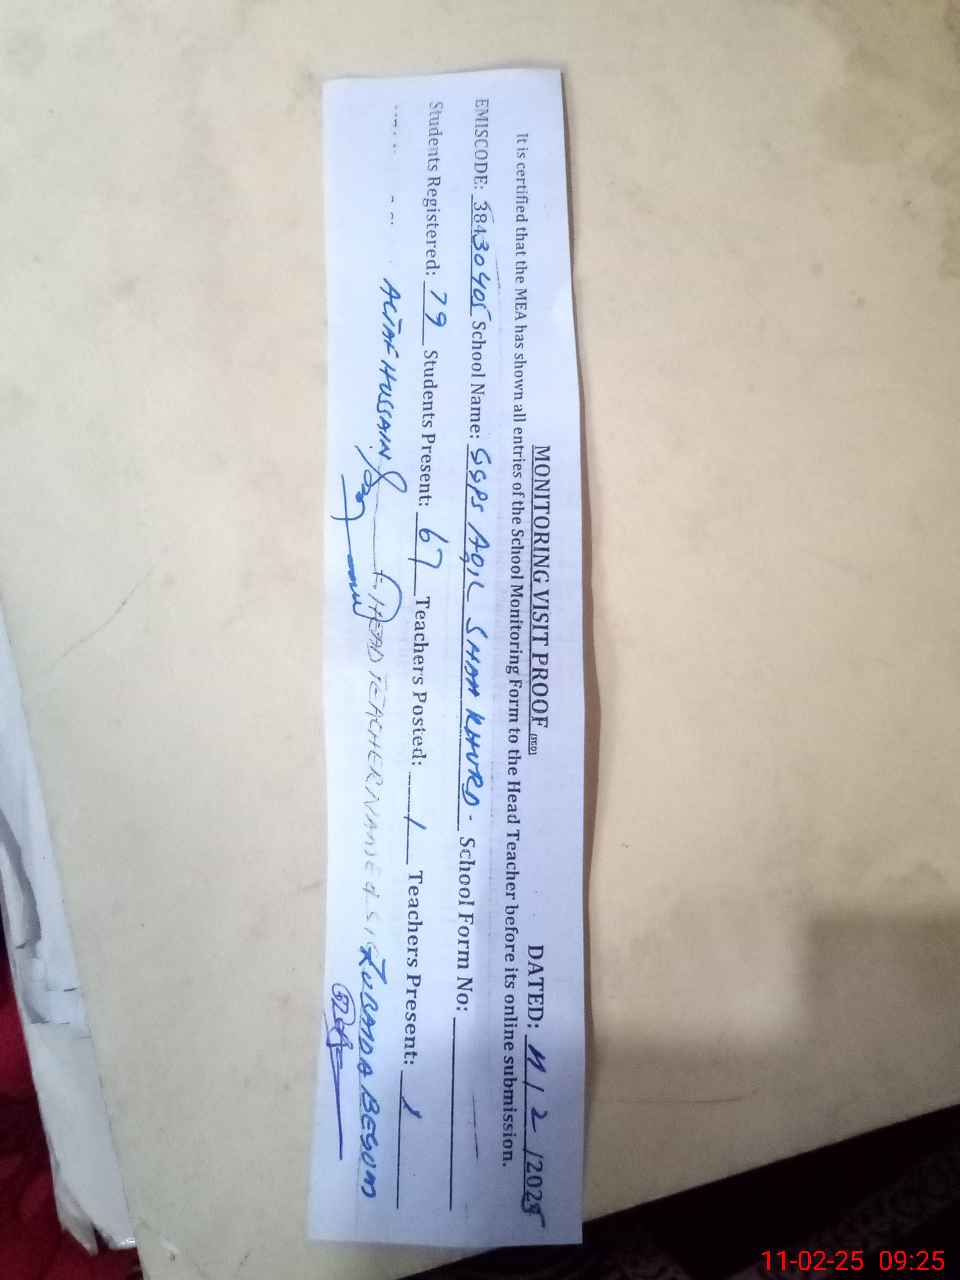 MONITORING VISIT PROOF (SED) DATED: 11/2/2025
It is certified that the MEA has shown all entries of the School Monitoring Form to the Head Teacher before its online submission.
EMISCODE: 38430405 School Name: GGPS AQIL SHAH KHURD - School Form No:
Students Registered: 79 Students Present: 67 Teachers Posted: 1 Teachers Present: 1
ALTAF HUSSAIN HEAD TEACHER NAME & SIG ZUBAIDA BEGUM
11-02-25 09:25